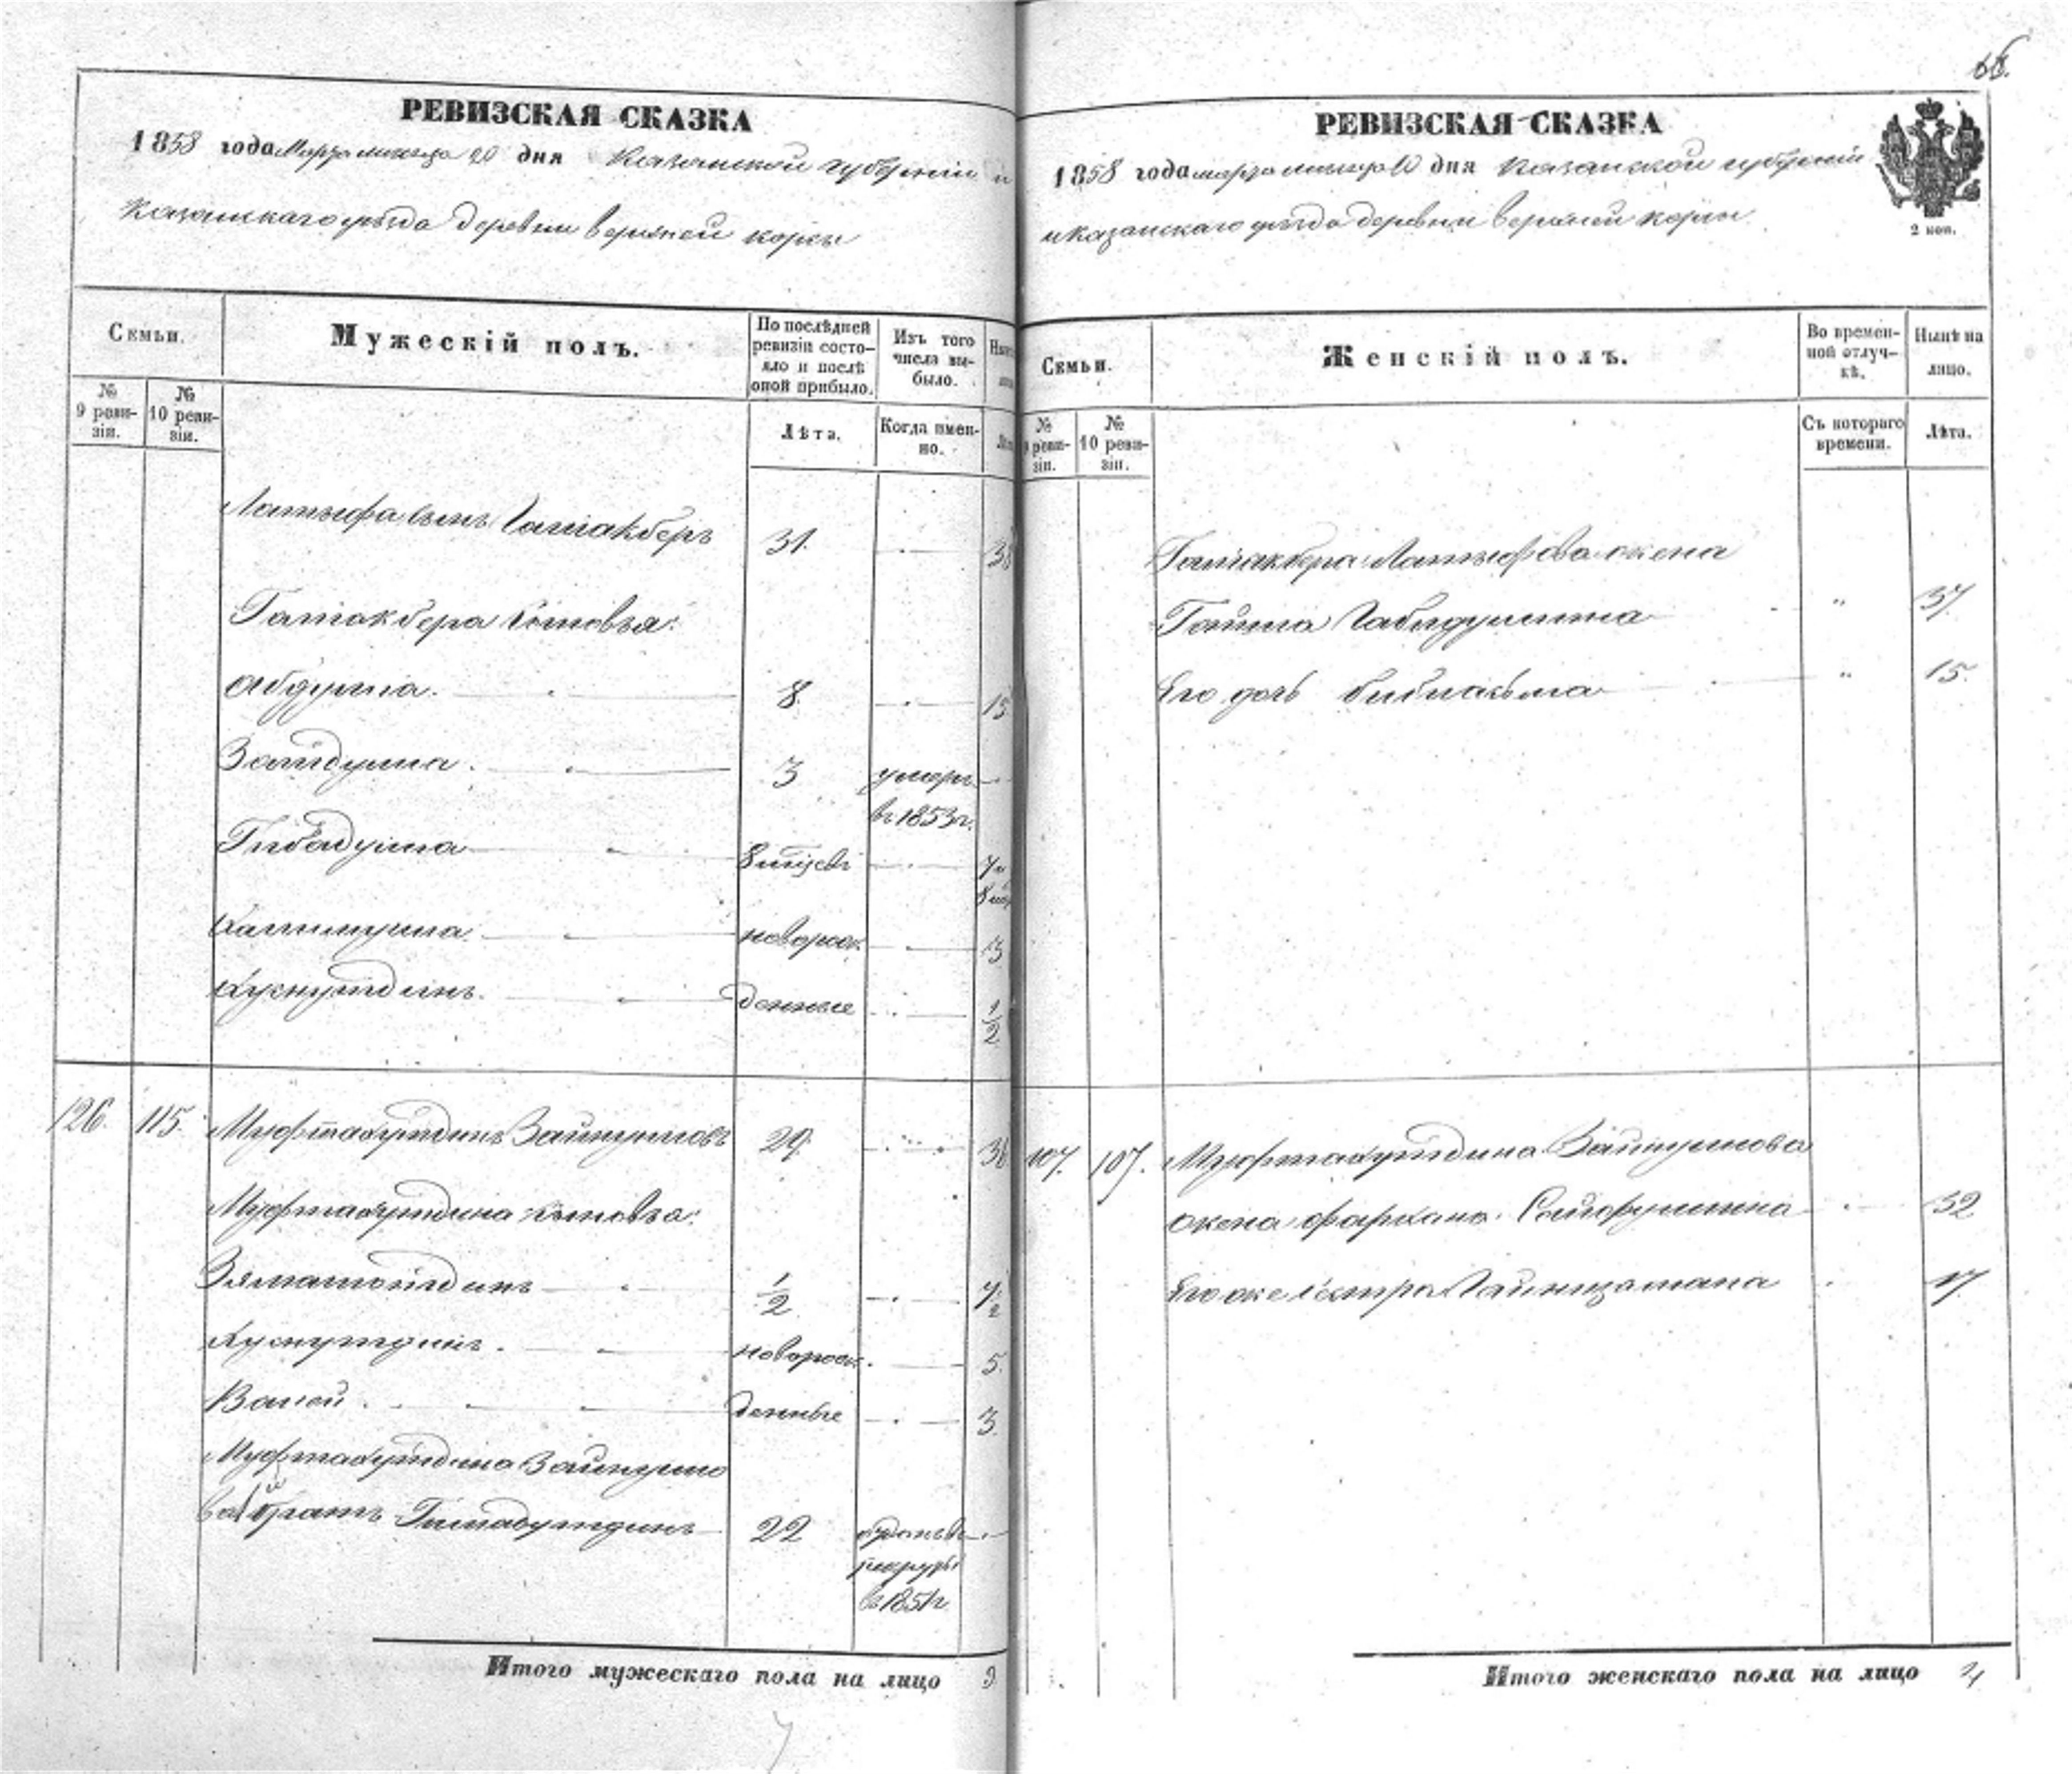 РЕВИЗСКАЯ СКАЗКА
1858 года Марта месяца 20 дня Казанской губернии и
Казанскаго уезда деревни верхней корсы
Семьи.
Мужескій полъ.
По послѣдней ревизіи состо-
яло и послѣ оной прибыло.
Изъ того числа вы-
было.
№ 9 реви-
зіи.
№ 10 реви-
зіи.
Лѣта.
Когда имен-
но.
Латыфа сынъ Галіакберъ 31.
Галіакбера сыновья:
Абдулла. 8. 15
Зайдулла. 3 умеръ
въ 1853 г.
Гибадулла 8 7 и
8
Калимулла новорож 3
Хуснутдинъ. денные 1/2
126. 115. Муфтахутдинъ Зайнулловъ 29.
Муфтахутдина сыновья:
1/2 7 1/2
Хуснутдинъ. новорож. 5.
Валей. денные 3.
Муфтахутдина Зайнулло
ва братъ 22 отданъ въ
рекруты
въ 1851 г.
Итого мужескаго пола на лицо 9
РЕВИЗСКАЯ СКАЗКА
1858 года марта месяца 20 дня Казанской губерніи
и Казанскаго уезда деревни верхней корсы
2 коп.
Семьи.
Женскій полъ.
Во времен-
ной отлуч-
кѣ.
Нынѣ на
лицо.
№ 9 реви-
зіи.
№ 10 реви-
зіи.
Съ котораго
времени.
Лѣта.
Галіакбера Латыфова жена
Габидуллина " 37.
Его дочь " 15.
107. 107. Муфтахутдина Зайнуллова
жена Фархана 32
Его же сестра 17
Итого женскаго пола на лицо 4